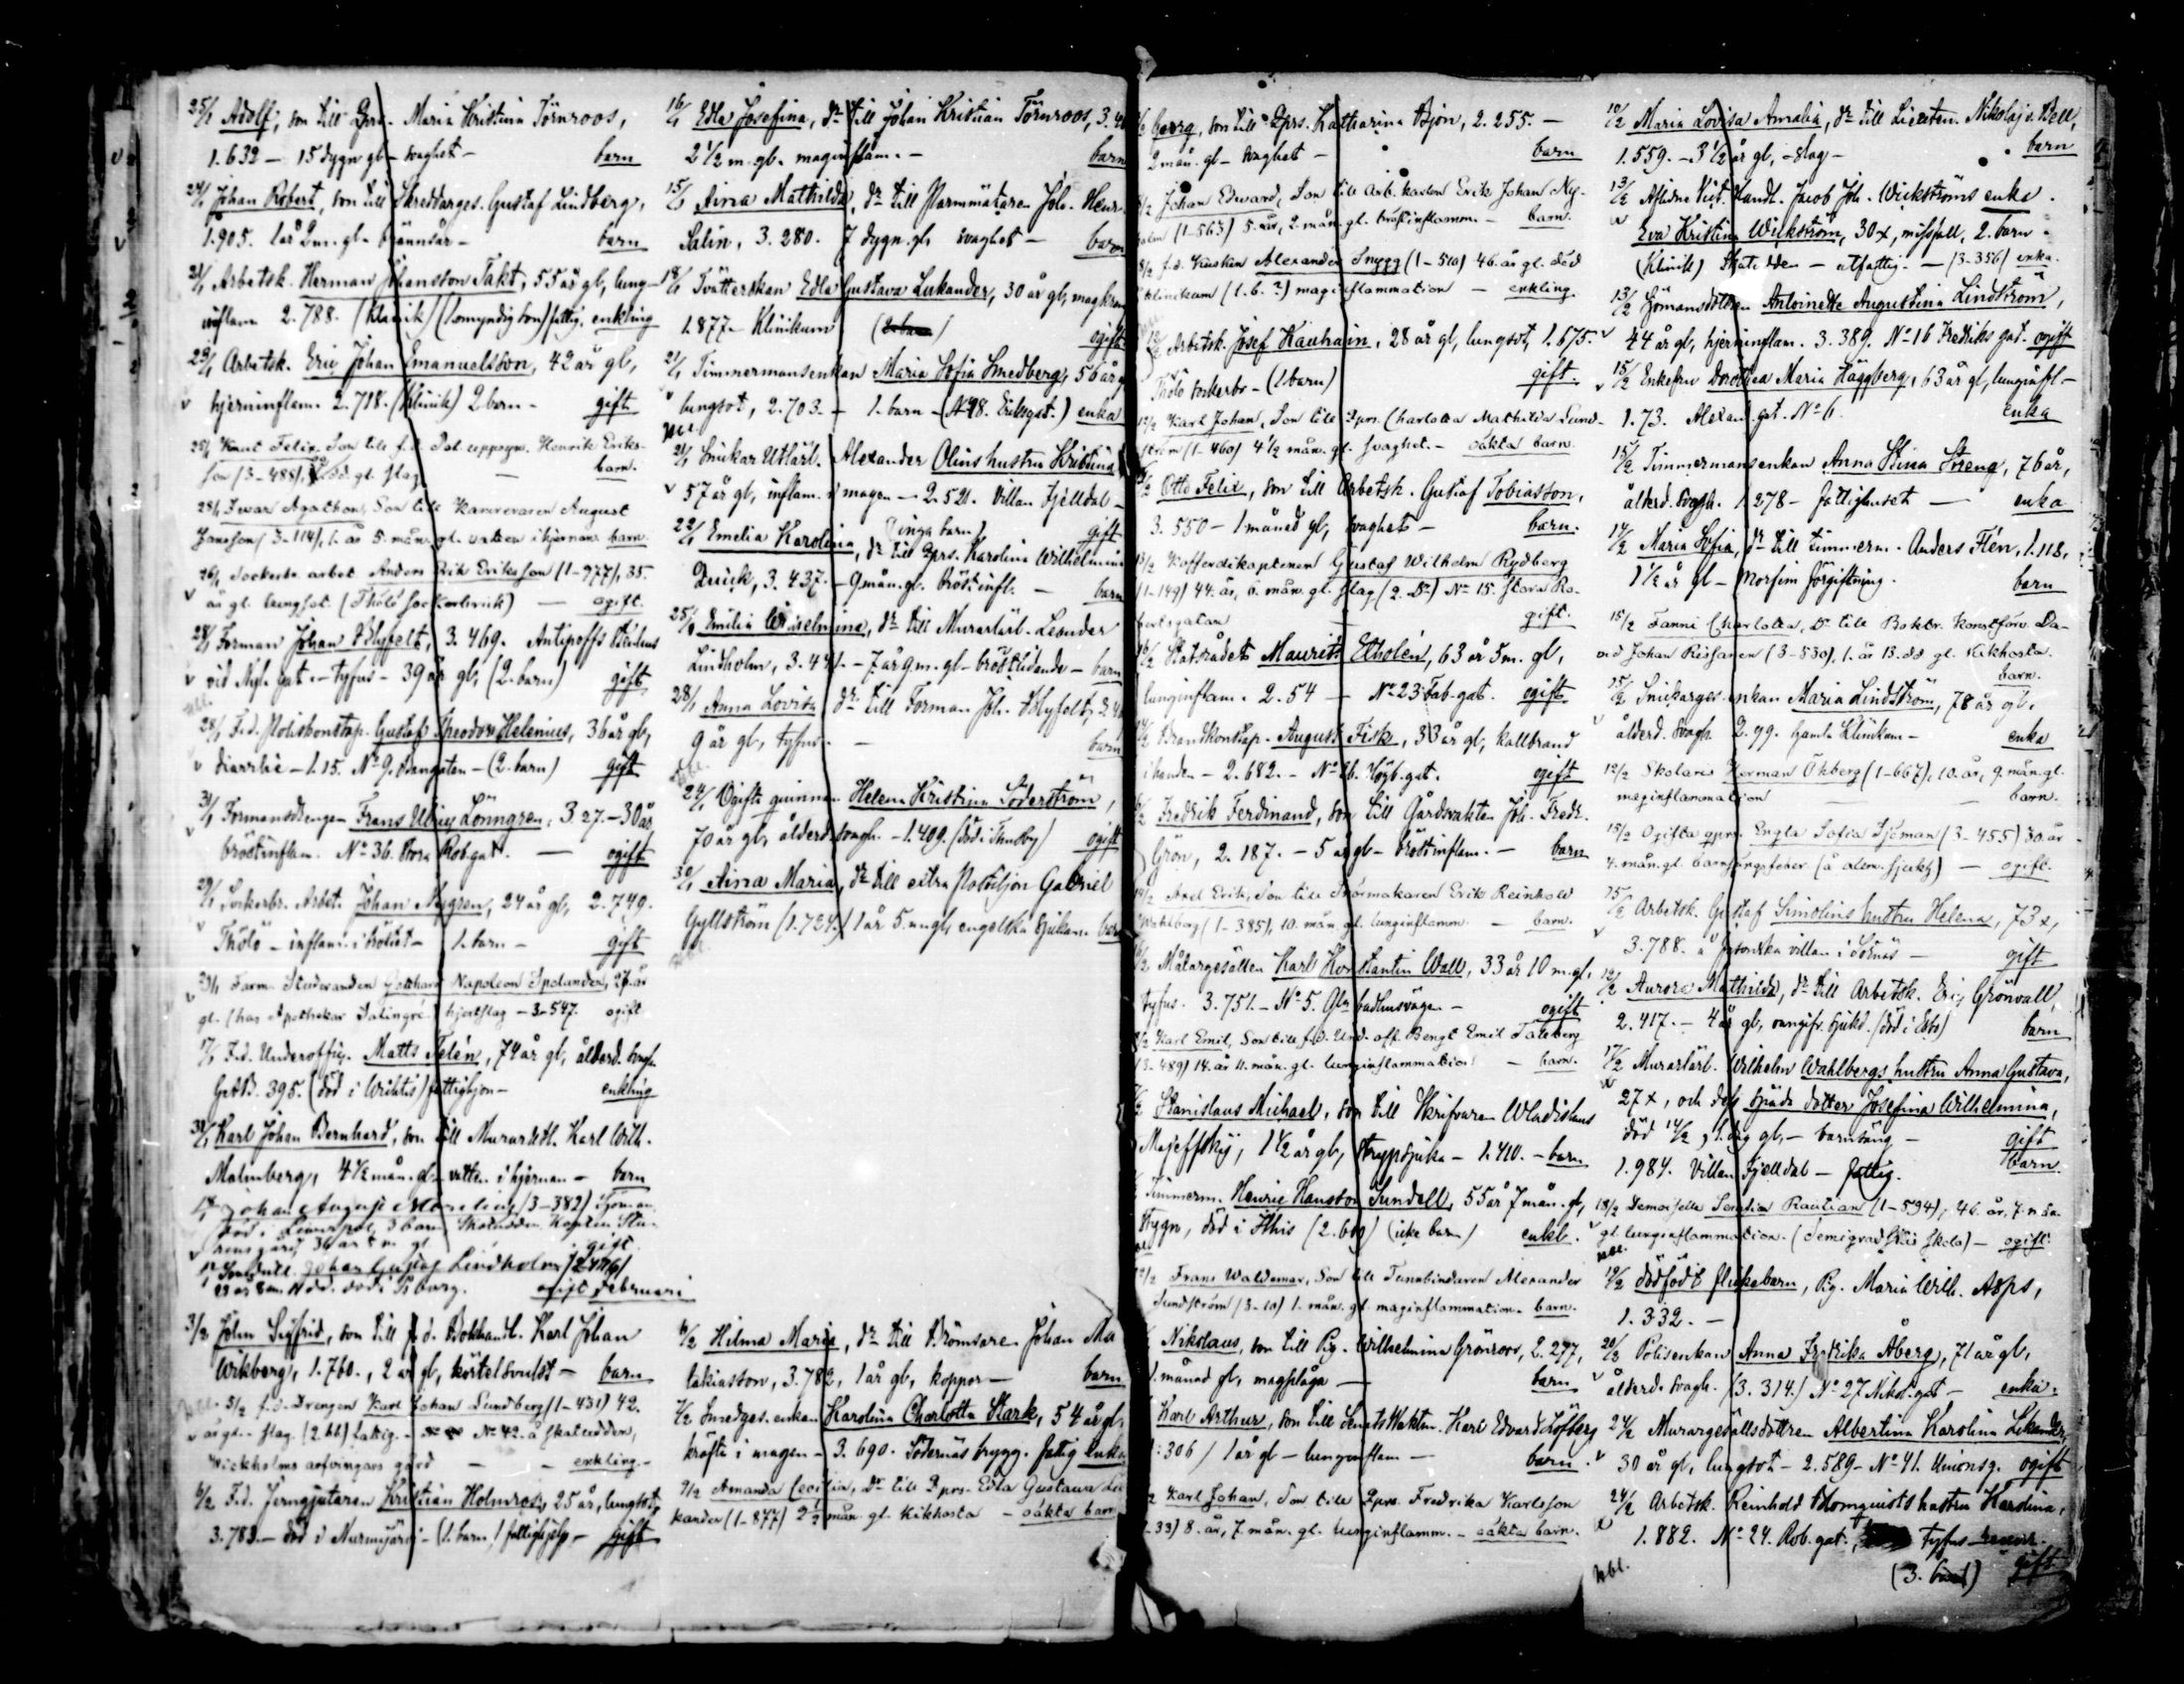 25/1 Adolf, son till Qprs. Maria Kristina Törnroos,
1.632 – 15 dygn gl – svaghet – barn
24/1 Johan Robert, son till Skreddarges. Gustaf Lindberg,
1.905. 1 år 2 m. gl – brännsår – barn
21/1 Arbetsk. Herman Johansson Takt, 55 år gl, lung-
inflam 2.788. (Klinik) (1 omyndig son) fattig. enkling
23/1 Arbetsk. Eric Johan Emanuelsson, 42 år gl,
hjerninflam. 2.718. (Klinik) 2 barn – gift
25/1 Knut Felix, Son till f.d. Pol. uppsyn. Henrik Eriks-
son (3-488), dd. gl. slag – barn.
25/1 Iwar Agathon, Son till Karrervaren August
Jansson (3-114), 1. år 5. mån. gl. vatten i hjernan. barn.
26/1 Sockerbr. arbet. Anders Erik Eriksson (1-977), 35.
år gl. lungsot. (Thölö Sockerbruk) – ogift.
28/1 Forman Johan Blyfelt, 3.469. Antipoffs stenhus
vid Nyl. gat. – tyfus – 39 år gl, (2. barn) gift
28/1 F.d. Poliskonstap. Gustaf Theodor Helenius, 36 år gl,
diarrhé – 1.15. No 9. – (2. barn) gift
31/1 Formansdrengen Frans Ulric Lönngren, 3 27. – 30 år
bröstinflam. No 36. Stora Rob. gat. – ogift
29/1 Sockerbr. Arbet. Johan Nygren, 24 år gl, 2.749.
Thölö – inflam. i bröstet – 1. barn – gift
31/1 Farm. Studeranden Gotthard Napoleon Spolander, 27. år
gl. (hos Apothekar Salingre) hjertslag – 3-547. ogift
17/1 F.d. Underoffic. Matts Telén, 74 år gl, ålderd. svagh.
395. (död i Wichtis) fattighjon – enkling
31/1 Karl Johan Bernhard, son till Murarlärl. Karl Wilh.
Malmberg, 4 1/2 mån. gl – vatten i hjernan – barn
Johan August (3-382) Sjöman
död i Liverpool, 3 barn, Skatudden. Kapten
gård 36 år m. gl gift
Johan Gustaf Lindholm
22 år 8 m. död i ogift Februari
3/2 John Sigfrid, son till f.d. Bokhandl. Karl Johan
Wikberg, 1.760., 2 år gl, körtelsvulst – barn
5/2 f.d. Drengen Karl Johan Lundberg (1-431) 42.
år gl. – slag. fattig. – No 42. å Skatudden,
Wickholms arfvingars gård – enkling –
6/2 F.d. Jerngjutaren Kristian Holmros, 25 år, lungsot,
3.783. – död i Nurmijärvi – (1. barn) fattighjelp – gift
16/1 Edla Josefina, dr till Johan Kristian Törnroos, 3.
2 1/2 m. gl. maginflam. – barn
15/1 Aina Mathilda, dr till Parmmätaren Joh. Henr.
Salin, 3.280. 7 dygn gl, svaghet – barn
18/1 Tvätterskan Edla Gustava Lukander, 30 år gl,
1.877 – Klinikum ogift
21/1 Timmermansenkan Maria Sofia Smedberg, 56 år
lungsot, 2.703. – 1. barn – (No 98. Eriksgat.) enka
21/1 Snickar Utlärl. Alexander Olins hustru Kristina
57 år gl, inflam. i magen – 2.521. Villan Fjelldal –
(inga barn) gift
22/1 Emelia Karolina, dr till Qprs. Karolina Wilhelmina
Quick, 3.437 – 9 mån. gl. bröstinfl. – barn
25/1 Emilia Wilhelmina, dr till Murarlärl. Leander
Lindholm, 3.441. – 7 år 9 m. gl – bröstlidande – barn
28/1 Anna Lovisa, dr till Forman Joh. Blyfelt, 3.
9 år gl, tyfus. – barn
24/1 Ogifta qvinnan Helena Kristina Söderström,
70 år gl, ålderd. svagh. – 1.409. (död i Thusby) ogift
30/1 Aina Maria, dr till extra Postiljon Gabriel
Gyllström (1.724.) 1 år 5. m gl, engelska sjukan. barn
6/2 Hilma Maria, dr till Bromsare Johan Ma
takiasson, 3.782, 1 år gl, koppor – barn
7/2 Smedges. enkan Karolina Charlotta Stark, 54 år gl,
kräfta i magen – 3.690. Södernäs brygg. fattig enka
9/2 Amanda Cecilia, Dr till Qprs. Edla Gustava Lu
kander (1-877) 2 1/2 mån. gl. Kikhosta – oäkta barn
Georg, son till Qprs. Katharina Björn, 2.255. –
2 mån. gl – svaghet – barn
Johan Edward, Son till Arb. karlen Erik Johan Ny-
holm (1-563) 5. år, 2. mån. gl. bröstinflamm. – barn.
f.d. Kusken Alexander Snygg (1-510) 46. år gl. död
Klinikum (1. b. ?) maginflammation – enkling.
Arbetsk. Josef Kauhain, 28 år gl, lungsot, 1.675.
Thölö sockerbr – (1 barn) gift
Karl Johan, Son till Qprs. Charlotta Mathilda Lund-
ström (1-460) 4 1/2 mån. gl. svaghet. – oäkta barn.
Otto Felix, son till Arbetsk. Gustaf Tobiasson,
3.550 – 1 månad gl, svaghet – barn.
13/2 Kofferdikaptenen Gustaf Wilhelm Rydberg
(1-149) 44. år, 6. mån. gl. slag (2. Dr) No 15. Stora Ro-
bertsgatan – gift.
Statsrådet Maurits Etholén, 63 år 5 m. gl,
lunginflam. 2.54 – No 23 Fab. gat. ogift
Brandkonstap. August Fisk, 33 år gl, kallbrand
i handen – 2.682. – No 16. Högb. gat. ogift
Fredrik Ferdinand, son till Gårdsvakten Joh. Fredr.
Grön, 2.187. – 5 år gl – bröstinflam. – barn
Axel Erik, Son till Snörmakaren Erik Reinhold
(1-385), 10. mån. gl. lunginflamm. – barn.
Målargesällen Karl Konstantin Wall, 33 år 10 m. gl,
tyfus. 3.751. – No 5. badhusvägen – ogift
Karl Emil, Son till f.d. Und. off. Bengt Emil Taleberg
(3-489) 14. år 11. mån. gl. lunginflammation – barn.
Stanislaus Michael, son till Skrifvaren Wladislaus
Majeffskij, 1 1/2 år gl, strypsjuka – 1.410. – barn
Timmerm. Henric Hansson Sundell, 55 år 7 mån. gl,
död i Sthis (2.6 ) (icke barn) enkl.
Frans Waldemar, Son till Tunnbindaren Alexander
Sundström (3-10) 1. mån. gl. maginflammation. barn.
Nikolaus, son till Pig. Wilhelmina Grönroos, 2.277,
1. månad gl, magplåga – barn
Karl Arthur, son till Senats Vakten Karl Edvard Löfberg
306) 1 år gl – lunginflam – barn
Karl Johan, Son till Qprs. Fredrika Karlsson
-33) 8. år, 7. mån. gl. lunginflamm. – oäkta barn.
10/2 Maria Lovisa Amalia, dr till Lieuten. Nikolaj v. Bell,
1.559. – 3 1/2 år gl, – slag – barn
13/2 Aflidne Vict. Handl. Jacob Joh. Wickströms enka
Eva Kristina Wickström, 30 x, missfall, 2. barn.
(Klinik) Skatudden – utfattig. – (3-356) enka.
13/2 Sjömansdottren Antoinette Augustina Lindström,
44 år gl, hjerninflam. 3.389. No 16 Fredriks gat. ogift
15/2 Enkefru Dorothea Maria Häggberg, 63 år gl, lunginfl –
1.73. Alexand. gat. No 6. enka
15/2 Timmermansenkan Anna Stina Streng, 76 år,
ålderd. svagh. 1.278 – fattighuset – enka
14/2 Maria Sofia, dr till timmerm. Anders Flén, 1.118,
1 1/2 år gl – Morfin förgiftning. barn
15/2 Fanni Charlotta, Dr till Boktr. Konstförv. Da-
vid Johan Rissanen (3-530), 1. år 13. dd. gl. Kikhosta.
barn.
15/2 Snickarges. enkan Maria Lindström, 78 år gl,
ålderd. svagh. 2.99. Gamla Klinikum – enka
12/2 Skolaris Herman Öhberg (1-667), 10. år, 9. mån. gl.
maginflammation – barn.
15/2 Ogifta qprs. Engla Sofia Sjöman (3-455) 30. år
4. mån. gl. barnsängsfeber (å allm. sjukh) – ogift.
15/2 Arbetsk. Gustaf Simolins hustru Helena, 73 x,
3.788. å villan i Sörnäs – gift
12/2 Aurora Mathilda, dr till Arbetsk. Eric Grönvall,
2.417. – 4 år gl, sjukd. (död i Esbo) barn
17/2 Murarlärl. Wilhelm Wahlbergs hustru Anna Gustava,
27 x, och dess späda dotter Josefina Wilhelmina,
död 14/2, 1. dag gl, – barnsäng – gift
barn.
1.984. Villan Fjelldal – fattig.
18/2 Demoiselle Serafia Rautian (1-594), 46. år, 7. mån.
gl. lunginflammation. – ogift.
19/2 dödfödt flickebarn, Pig. Maria Wilh. Asps,
1.332. –
20/2 Polisenkan Anna Fredrika Åberg, 71 år gl,
ålderd. svagh. (3.314.) No 27 Nikol. gat – enka.
24/2 Murargesällsdottren Albertina Karolina
30 år gl, lungsot – 2.589 – No 41. Unionsg. ogift
24/2 Arbetsk. Reinhold Blomquists hustru Karolina,
1.882. No 24. Rob. gat., tyfus
(3. barn) gift